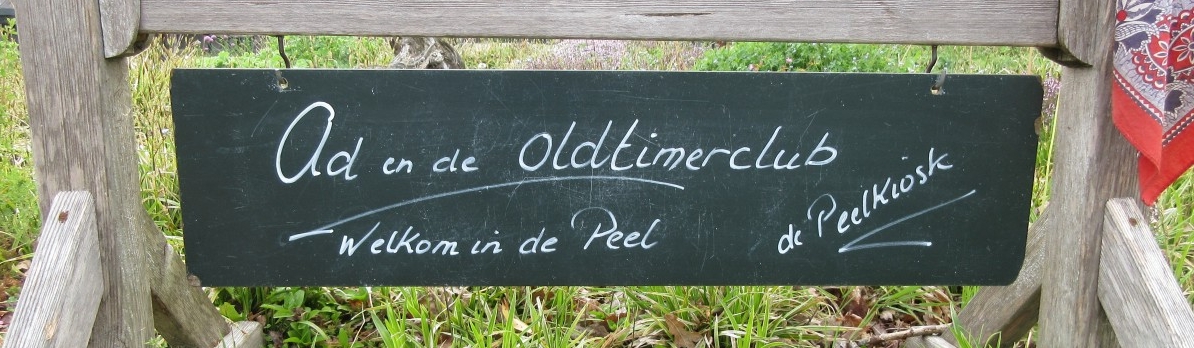 Ad en de Oldtimerclub
Welkom in de Peel
de PeelKiosk